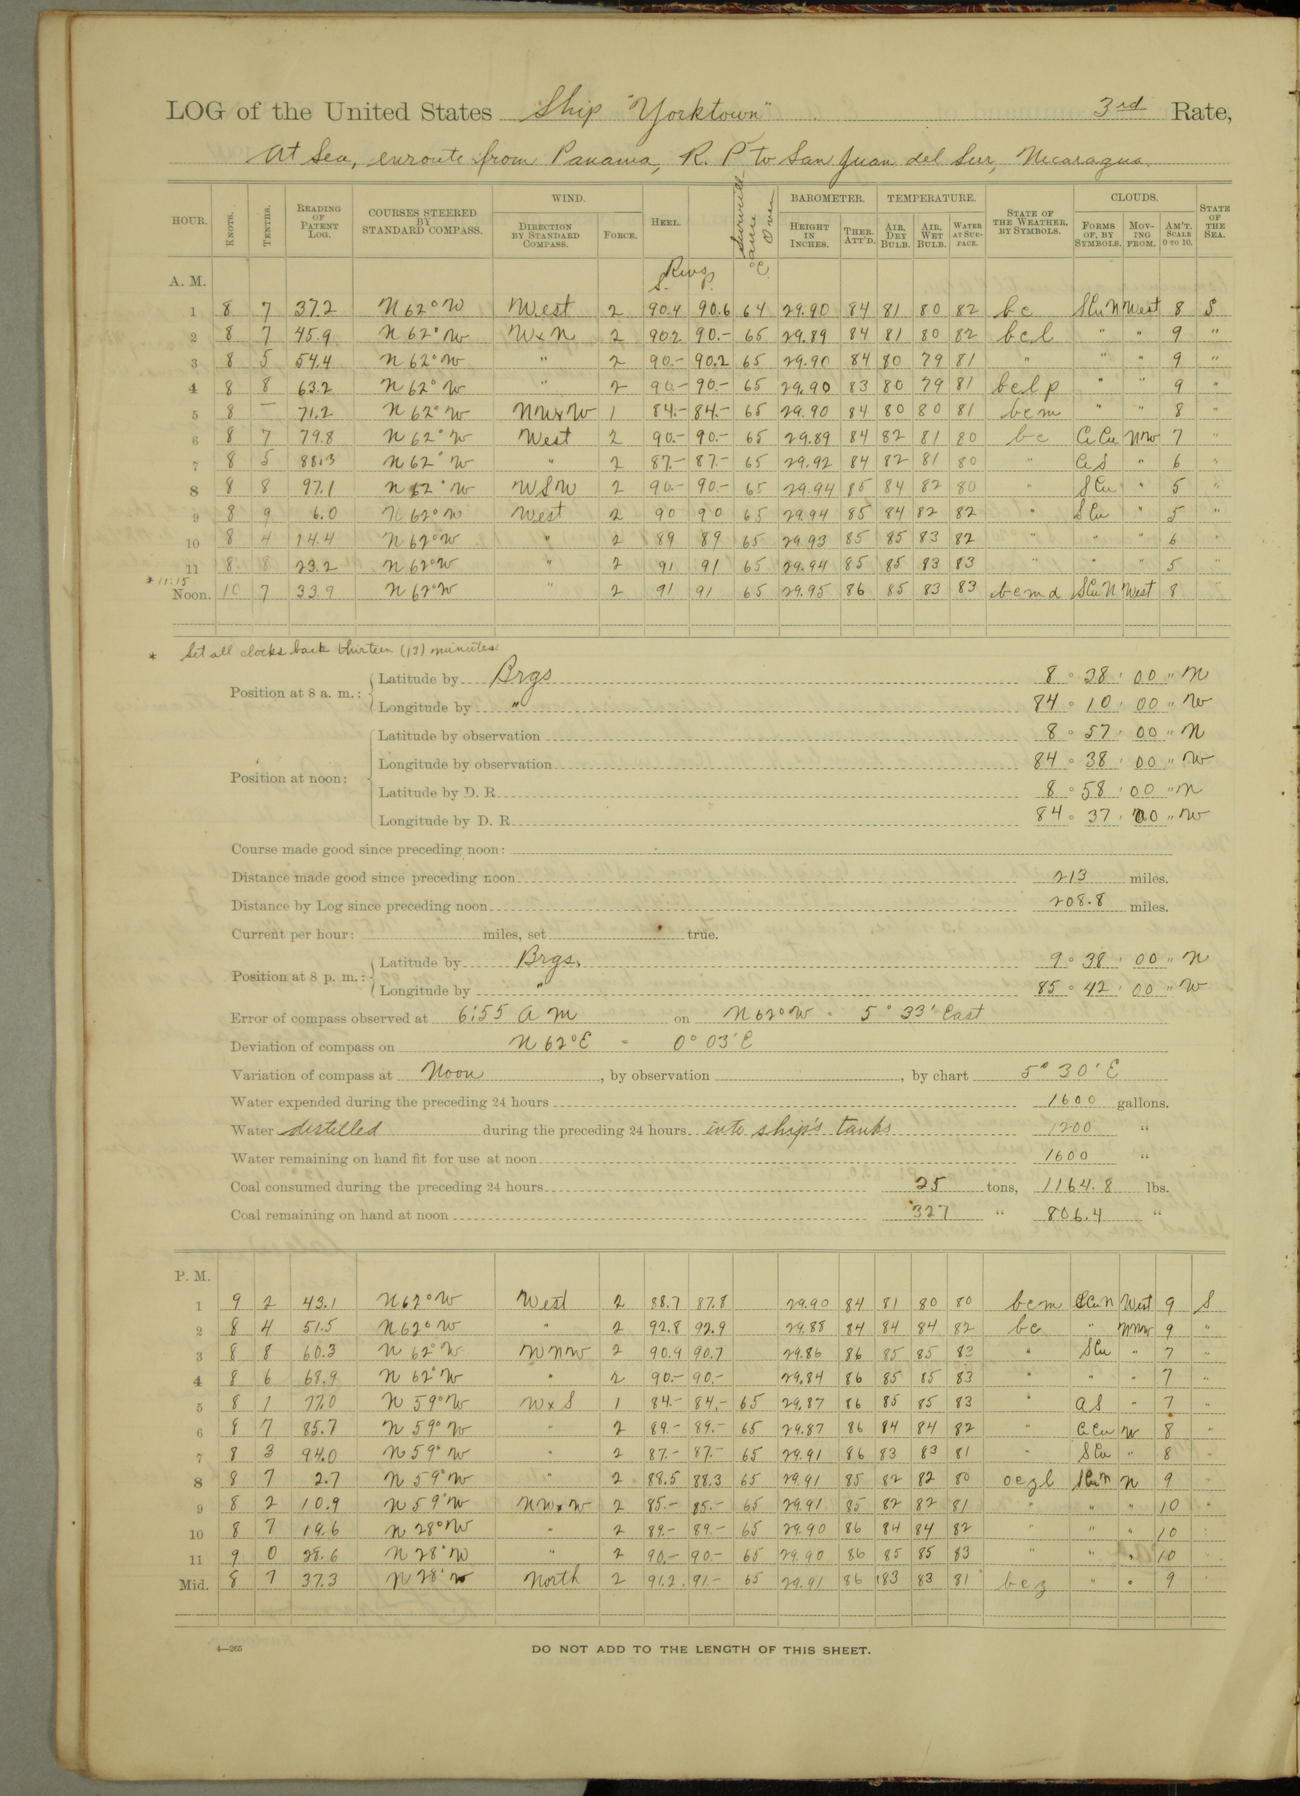 LOG of the United States Ship "Yorktown" 3rd Rate,
At Sea, enroute from Panama, R. P. to San Juan del Sur, Nicaragua.
HOUR. KNOTS. TENTHS. READING OF PATENT LOG. COURSES STEERED BY STANDARD COMPASS. WIND. DIRECTION BY STANDARD COMPASS. FORCE. HEEL. BAROMETER. HEIGHT IN INCHES. THER. ATT'D. TEMPERATURE. AIR, DRY BULB. AIR, WET BULB. WATER AT SURFACE. STATE OF THE WEATHER, BY SYMBOLS. CLOUDS. FORMS OF, BY SYMBOLS. MOVING FROM. AM'T. SCALE 0 TO 10. STATE OF THE SEA.
A. M. S. Revs P.
1 8 7 37.2 N 62° W West 2 90.4 90.6 64 29.90 84 81 80 82 bc SCuN West 8 S
2 8 7 45.9 N 62° W WxN 2 90.2 90.- 65 29.89 84 81 80 82 bcl " " 9 "
3 8 5 54.4 N 62° W " 2 90.- 90.2 65 29.90 84 80 79 81 " " " 9 "
4 8 8 63.2 N 62° W " 2 90.- 90.- 65 29.90 83 80 79 81 bclp " " 9 "
5 8 — 71.2 N 62° W NWxW 1 84.- 84.- 65 29.90 84 80 80 81 bcm " " 8 "
6 8 7 79.8 N 62° W West 2 90.- 90.- 65 29.89 84 82 81 80 bc CiCu NW 7 "
7 8 5 88.3 N 62° W " 2 87.- 87.- 65 29.92 84 82 81 80 " CiS " 6 "
8 8 8 97.1 N 62° W WSW 2 90.- 90.- 65 29.94 85 84 82 80 " SCu " 5 "
9 8 9 6.0 N 62° W West 2 90 90 65 29.94 85 84 82 82 " SCu " 5 "
10 8 4 14.4 N 62° W " 2 89 89 65 29.93 85 85 83 82 " " " 6 "
11 8 8 23.2 N 62° W " 2 91 91 65 29.94 85 85 83 83 " " " 5 "
* 11:15
Noon. 10 7 33.9 N 62° W " 2 91 91 65 29.95 86 85 83 83 bcmd SCuN West 8 "
* Set all clocks back thirteen (13) minutes
Position at 8 a. m.: Latitude by Brgs 8 ° 28 ' 00 " N
Longitude by " 84 ° 10 ' 00 " W
Position at noon: Latitude by observation 8 ° 57 ' 00 " N
Longitude by observation 84 ° 38 ' 00 " W
Latitude by D. R. 8 ° 58 ' 00 " N
Longitude by D. R. 84 ° 37 ' 00 " W
Course made good since preceding noon:
Distance made good since preceding noon 213 miles.
Distance by Log since preceding noon 208.8 miles.
Current per hour: miles, set true.
Position at 8 p. m.: Latitude by Brgs. 9 ° 38 ' 00 " N
Longitude by " 85 ° 42 ' 00 " W
Error of compass observed at 6:55 AM on N 62° W - 5° 33' East
Deviation of compass on N 62° E - 0° 03' E
Variation of compass at Noon, by observation , by chart 5° 30' E
Water expended during the preceding 24 hours 1600 gallons.
Water distilled during the preceding 24 hours into ship's tanks 1200 "
Water remaining on hand fit for use at noon 1600 "
Coal consumed during the preceding 24 hours 25 tons, 1164.8 lbs.
Coal remaining on hand at noon 327 " 806.4 "
P. M.
1 9 2 43.1 N 62° W West 2 88.7 87.8 29.90 84 81 80 80 bcm SCuN West 9 S
2 8 4 51.5 N 62° W " 2 92.8 92.9 29.88 84 84 84 82 bc " WNW 9 "
3 8 8 60.3 N 62° W WNW 2 90.9 90.7 29.86 86 85 85 83 " SCu " 7 "
4 8 6 68.9 N 62° W " 2 90.- 90.- 29.84 86 85 85 83 " " " 7 "
5 8 1 77.0 N 59° W WxS 1 84.- 84.- 65 29.87 86 85 85 83 " AS - 7 "
6 8 7 85.7 N 59° W " 2 89.- 89.- 65 29.87 86 84 84 82 " CiCu W 8 "
7 8 3 94.0 N 59° W " 2 87.- 87.- 65 29.91 86 83 83 81 " SCu " 8 "
8 8 7 2.7 N 59° W " 2 88.5 88.3 65 29.91 85 82 82 80 oczl SCuN N 9 "
9 8 2 10.9 N 59° W NWxW 2 85.- 85.- 65 29.91 85 82 82 81 " " " 10 "
10 8 7 19.6 N 28° W " 2 89.- 89.- 65 29.90 86 84 84 82 " " " 10 "
11 9 0 28.6 N 28° W " 2 90.- 90.- 65 29.90 86 85 85 83 " " " 10 "
Mid. 8 7 37.3 N 28° W North 2 91.2 91.- 65 29.91 86 83 83 81 bcz " " 9 "
4—265
DO NOT ADD TO THE LENGTH OF THIS SHEET.